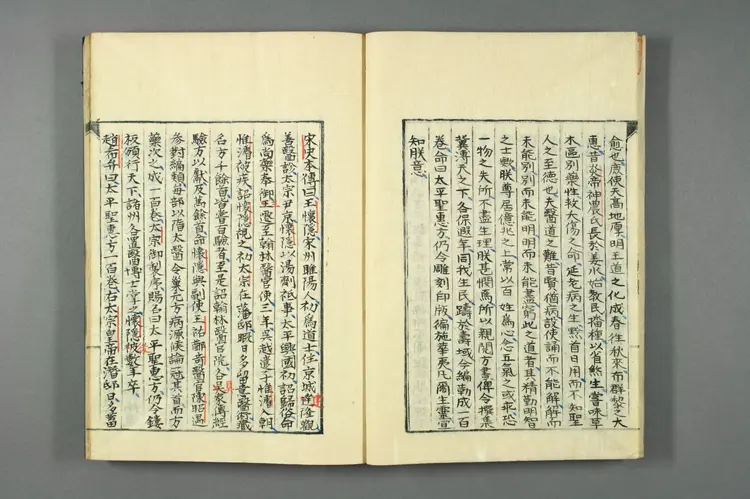 愈也歲使天高地厚明王道之化成春往秋來布群黎之大
惠昔炎帝神農氏長於姜水始教民播種以省煞生嘗味草
木區別藥性救夭傷之命延老病之生黔首日用而不知聖
人之至德也夫醫道之難昔賢猶病設使誦而不能解解而
未能別別而未能明明而未能盡窮此之道者其精勤明智
之士歟朕尊居億兆之上常以百姓為心念五氣之或乖恐
一物之失所不盡生理朕甚憫焉所以親閱方書俾令撰集
冀溥天之下各保遐年同我生民躋於壽域今編勒成一百
卷命曰太平聖惠方仍令雕刻印版徧施華夷凡爾生靈宜
知朕意
宋史本傳曰王懷隱宋州睢陽人初為道士住京城建隆觀
善醫診太宗尹京懷隱以湯劑祗事太平興國初詔歸俗命
為尚藥奉御三遷至翰林醫官使三年吳越遣子惟濬入朝
惟濬被疾詔懷隱視之初太宗在藩邸暇日多留意醫術藏
名方千餘首皆嘗有驗者至是詔翰林醫官院各具家傳經
驗方以獻又萬餘首命懷隱與副使王祐鄭奇醫官陳昭遇
參對編類每部以隋太醫令巢元方病源候論冠其首而方
藥次之成一百卷太宗御製序賜名曰太平聖惠方仍令鏤
板頒行天下諸州各置醫博士掌之懷隱後數年卒
趙希弁曰太平聖惠方一百卷右太宗皇帝在潛邸日多蓄